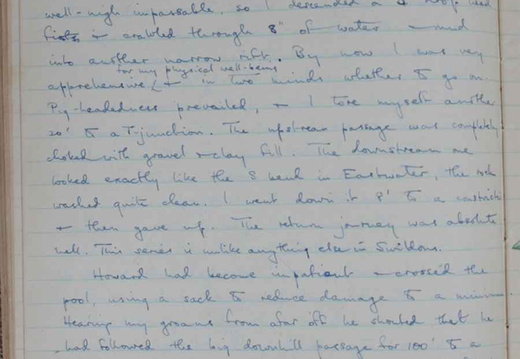 well-nigh impassable. so I descended a
+ crawled through 8" of water + mud
into another narrow rift. By now I was very
for my physical well-being
apprehensive + in two minds whether to go on.
Pig-headedness prevailed, + I tore myself another
20' to a T-junction. The upstream passage was completely
choked with gravel + clay fill. The downstream one
looked exactly like the S bend in Eastwater, the rock
washed quite clean. I went down it 8' to a constriction
+ then gave up. The return journey was absolute
hell. This series is unlike anything else in Swildons.
Howard had become impatient + crossed the
pool, using a sack to reduce damage to a
Hearing my groans from afar off he shouted that he
had followed the big downhill passage for 100' to a